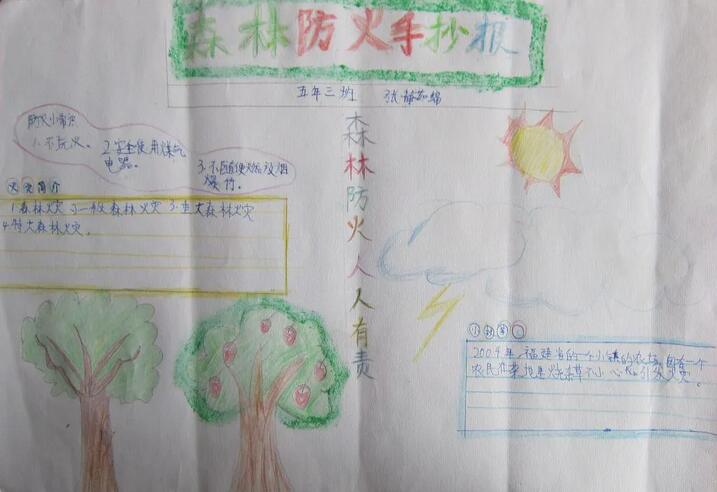 森林防火手抄报
五年三班 张静茹编
防火小常识
1.不玩火。
2.安全使用煤气
电器。
3.不随便燃放烟
爆竹。
火灾简介
1.森林火灾 2.一般森林火灾 3.重大森林火灾
4.特大森林火灾。
森林防火人人有责
小故事
2004年,福建省的一个小镇的农村,有一个
农民在菜地里烧杂草不小心,引发火灾。